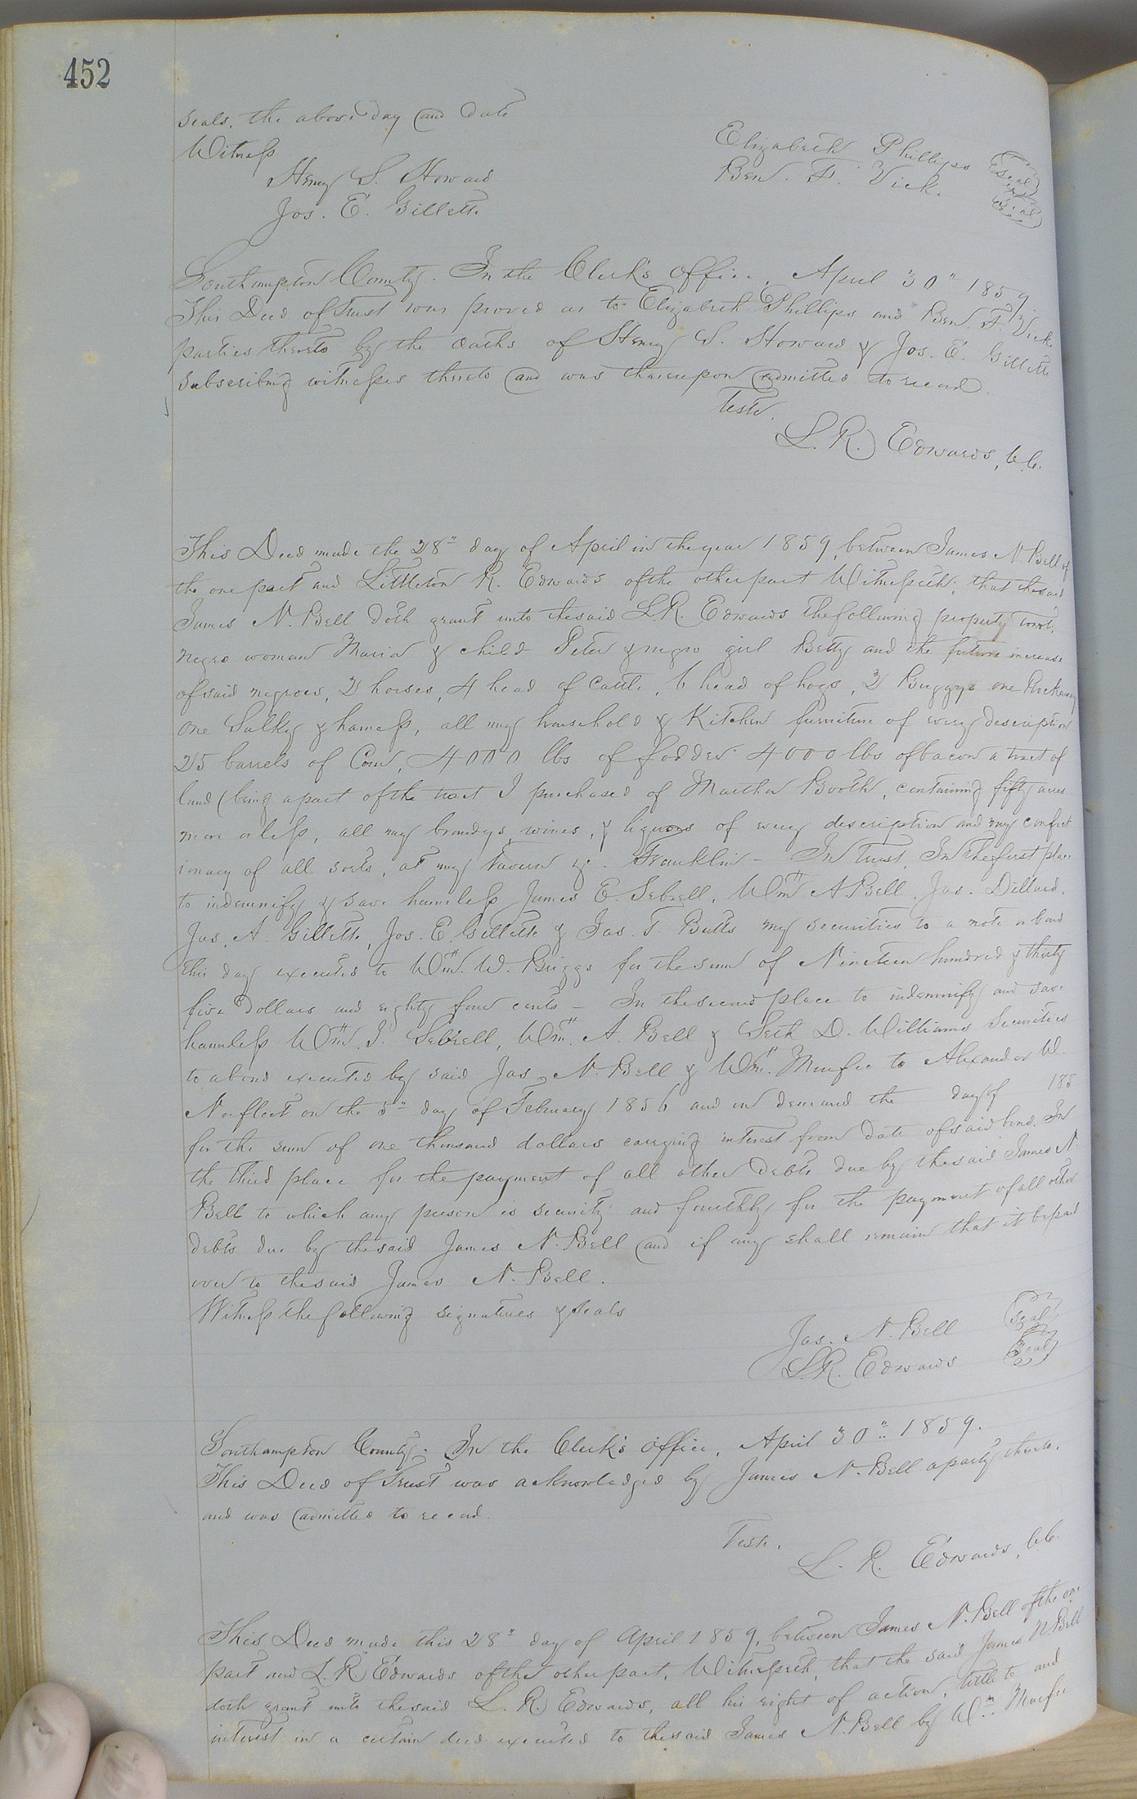 452
seals, the above day and date
Witness
Henry S. Howard
Jos. E. Gillette
Elizabeth Phillips Seal
Ben. F. Vick. Seal
Southampton County. In the Clerk's office, April 30" 1859
This Deed of Trust was proved as to Elizabeth Phillips and Ben. F. Vick
parties thereto by the oaths of Henry S. Howard & Jos. E. Gillette
subscribing witnesses thereto and was thereupon admitted to record.
Teste.
L. R. Edwards, C.C.
This Deed made the 28" day of April in the year 1859, between James N. Bell of
the one part and Littleton R. Edwards of the other part Witnesseth; that the said
James N. Bell doth grant unto the said L.R. Edwards the following property towit;
negro woman Maria & child Peter & negro girl Betty and the future increase
of said negroes, 2 horses, 4 head of Cattle, 6 head of hogs, 2 Buggys one
one Sulky & harness, all my household & Kitchen furniture of every description
25 barrels of Corn, 4000 lbs of fodder 4000 lbs of bacon a tract of
land (being a part of the tract I purchased of Martha Booth, containing fifty acres
more or less, all my brandys, wines, & liquors of every description and my confect
ionary of all sorts, at my tavern &c. Franklin - In Trust, In the first place
to indemnify & save harmless James E. Sebrell, Wm A Bell, Jas. Dillard,
Jas. A. Gillette, Jos. E. Gillette & Jas. T. Butts my securities to a note or bond
this day executed to Wm. W. Briggs for the sum of Nineteen hundred & thirty
five dollars and eighty four cents - In the second place to indemnify and save
harmless Wm. J. Sebrell, Wm. A. Bell & Seth D. Williams Securities
to a bond executed by said Jas. N. Bell & Wm. Murfee to Alexander W.
Norfleet on the 5" day of February 1856 and on demand the day of 185
for the sum of one thousand dollars carrying interest from date of said bond. In
the third place for the payment of all other debts due by the said James N.
Bell to which any person is security and fourthly for the payment of all other
debts due by the said James N. Bell and if any shall remain that it be paid
over to the said James N. Bell.
Witness the following signatures & seals
Jas. N. Bell Seal
L.R. Edwards Seal
Southampton County. In the Clerk's office, April 30" 1859.
This Deed of Trust was acknowledged by James N. Bell a party thereto,
and was admitted to record.
Teste,
L. R. Edwards, C.C.
This Deed made this 28" day of April 1859, between James N. Bell of the one
part and L. R. Edwards of the other part, Witnesseth, that the said James N Bell
doth grant unto the said L. R. Edwards, all his right of action, title to and
interest in a certain deed executed to the said James N. Bell by Wm. Murfee